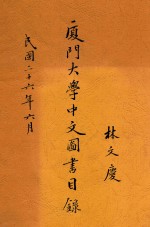 林文慶
廈門大學中文圖書目錄
民國二十六年六月